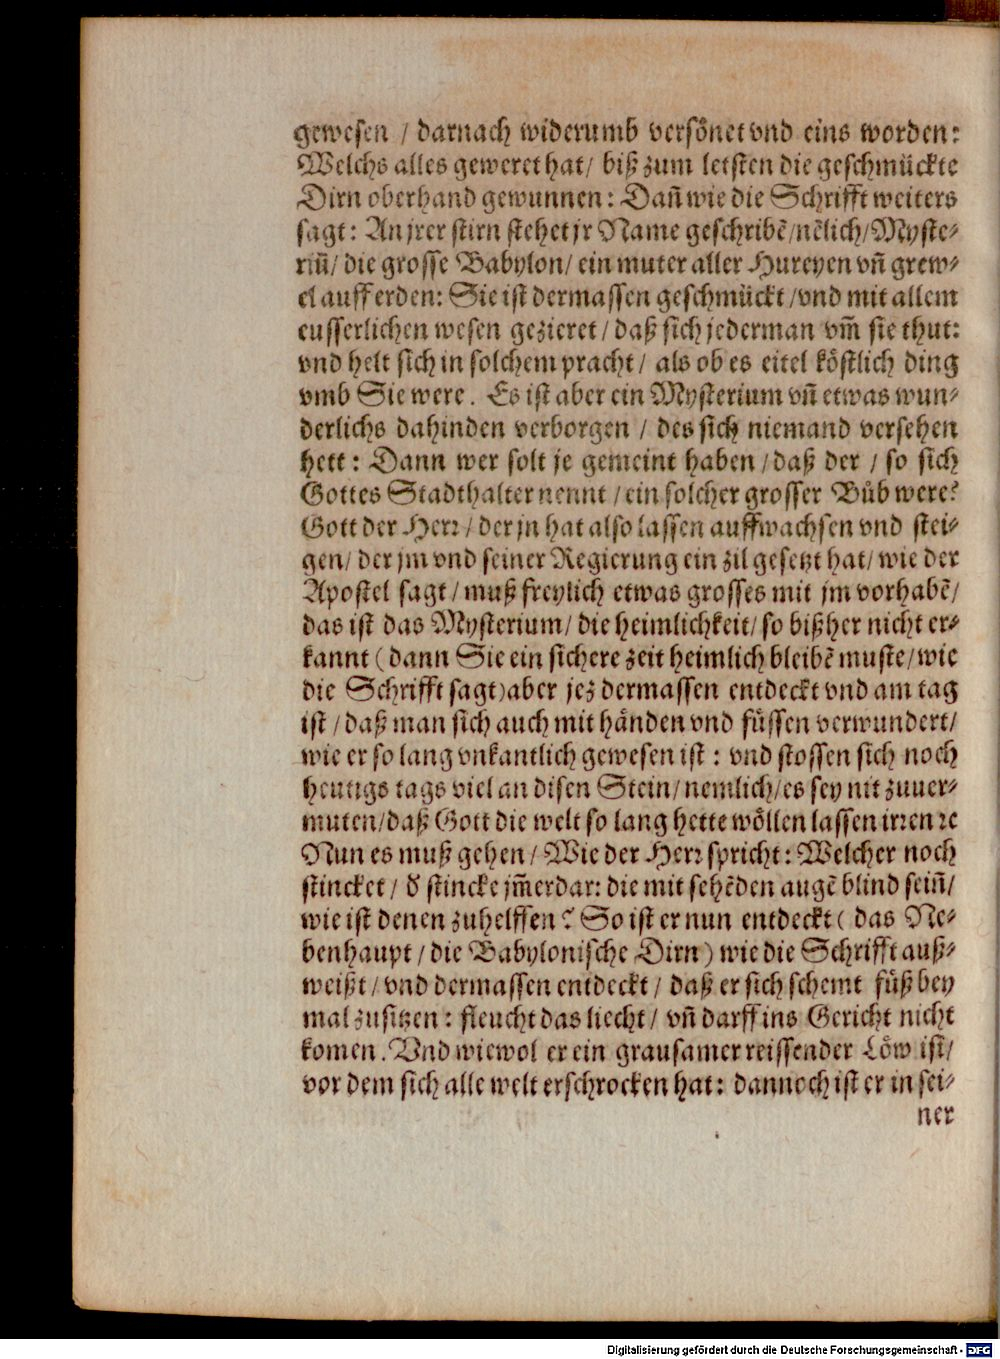 gewesen / darnach widerumb versönet vnd eins worden:
Welchs alles geweret hat / biß zum letsten die geschmückte
Dirn oberhand gewunnen: Dañ wie die Schrifft weiters
sagt: An jrer stirn stehet jr Name geschribē / nēlich / Myste-
riū / die grosse Babylon / ein muter aller Hureyen vñ grew-
el auff erden: Sie ist dermassen geschmückt / vnd mit allem
eusserlichen wesen gezieret / daß sich jederman vm̃ sie thut:
vnd helt sich in solchem pracht / als ob es eitel köstlich ding
vmb Sie were. Es ist aber ein Mysterium vñ etwas wun-
derlichs dahinden verborgen / des sich niemand versehen
hett: Dann wer solt je gemeint haben / daß der / so sich
Gottes Stadthalter nennt / ein solcher grosser Bůb were?
Gott der Herr / der jn hat also lassen auffwachsen vnd stei-
gen / der jm vnd seiner Regierung ein zil gesetzt hat / wie der
Apostel sagt / muß freylich etwas grosses mit jm vorhabē /
das ist das Mysterium / die heimlichkeit / so bißher nicht er-
kannt (dann Sie ein sichere zeit heimlich bleibē muste / wie
die Schrifft sagt) aber jez dermassen entdeckt vnd am tag
ist / daß man sich auch mit händen vnd füssen verwundert /
wie er so lang vnkantlich gewesen ist: vnd stossen sich noch
heutigs tags viel an disen Stein / nemlich / es sey nit zuuer-
muten / daß Gott die welt so lang hette wöllen lassen irren ꝛc
Nun es muß gehen / Wie der Herr spricht: Welcher noch
stincket / d̓ stincke jm̃erdar: die mit sehēden augē blind seiñ /
wie ist denen zuhelffen? So ist er nun entdeckt (das Ne-
benhaupt / die Babylonische Dirn) wie die Schrifft auß-
weißt / vnd dermassen entdeckt / daß er sich schemt füß bey
mal zusitzen: fleucht das liecht / vñ darff ins Gericht nicht
komen. Vnd wiewol er ein grausamer reissender Löw ist /
vor dem sich alle welt erschrocken hat: dannoch ist er in sei-
ner
Digitalisierung gefördert durch die Deutsche Forschungsgemeinschaft - DFG